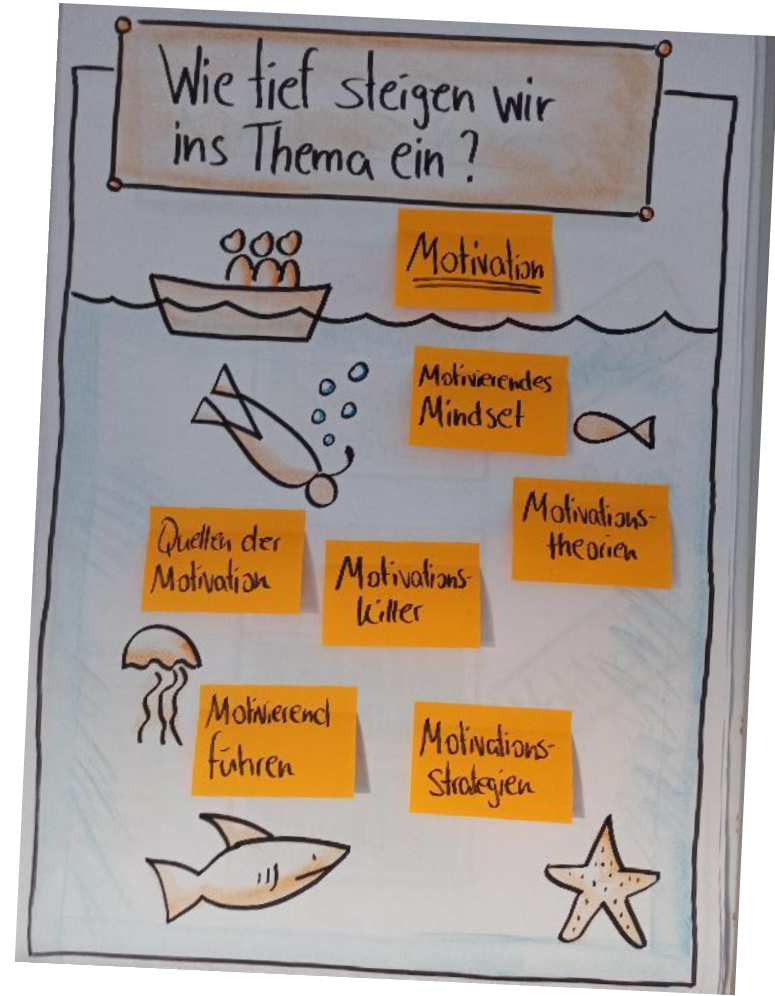 Wie tief steigen wir
ins Thema ein?
Motivation
Motivierendes
Mindset
Motivations-
theorien
Quellen der
Motivation
Motivations-
killer
Motivierend
führen
Motivations-
strategien